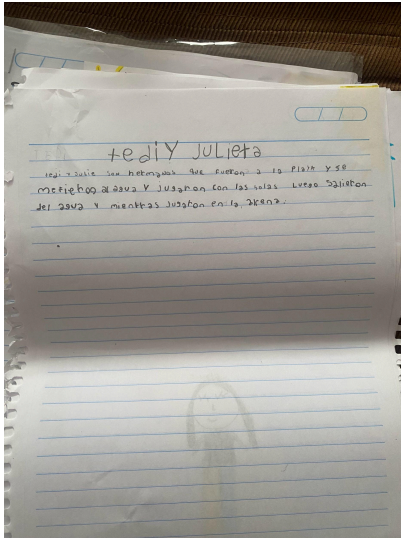 tedi Y Julieta
tedi Y Julie son hermanos que fueron a la Playa y se
metieron al agua Y Jugaron con las solas Luego Salieron
del agua Y mientras Jugaron en la arena.